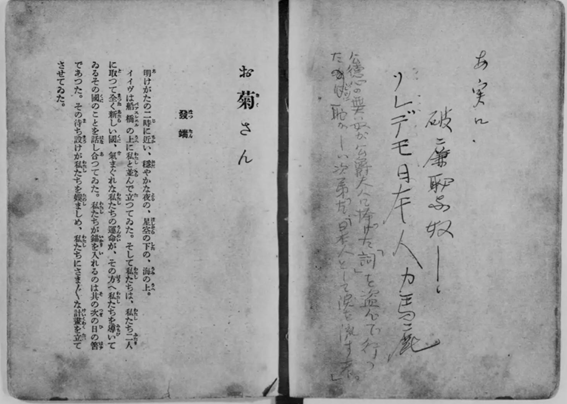 あ実に
破廉恥な奴!
ソレデモ日本人カ馬鹿
公徳心の無い奴が公爵夫人に捧げた「詞」を盗んで行つ
たのは恥かしい次第だ、日本人として涙を流す
お菊さん
發端
明けがたの二時に近い、穩やかな夜の、星空の下の、海の上。
イイヴは船橋の上に私と並んで立つてゐた。そして私たちは、私たち二人
に取つて全く新しい國、氣まぐれな私たちの運命が、その方へ私たちを導いて
ゐるその國のことを話し合つてゐた。私たちが錨を入れるのは其の次の日の筈
であつた。その待ち設けが私たちを娯ましめ、私たちにさま〲な計畫を立て
させてゐた。